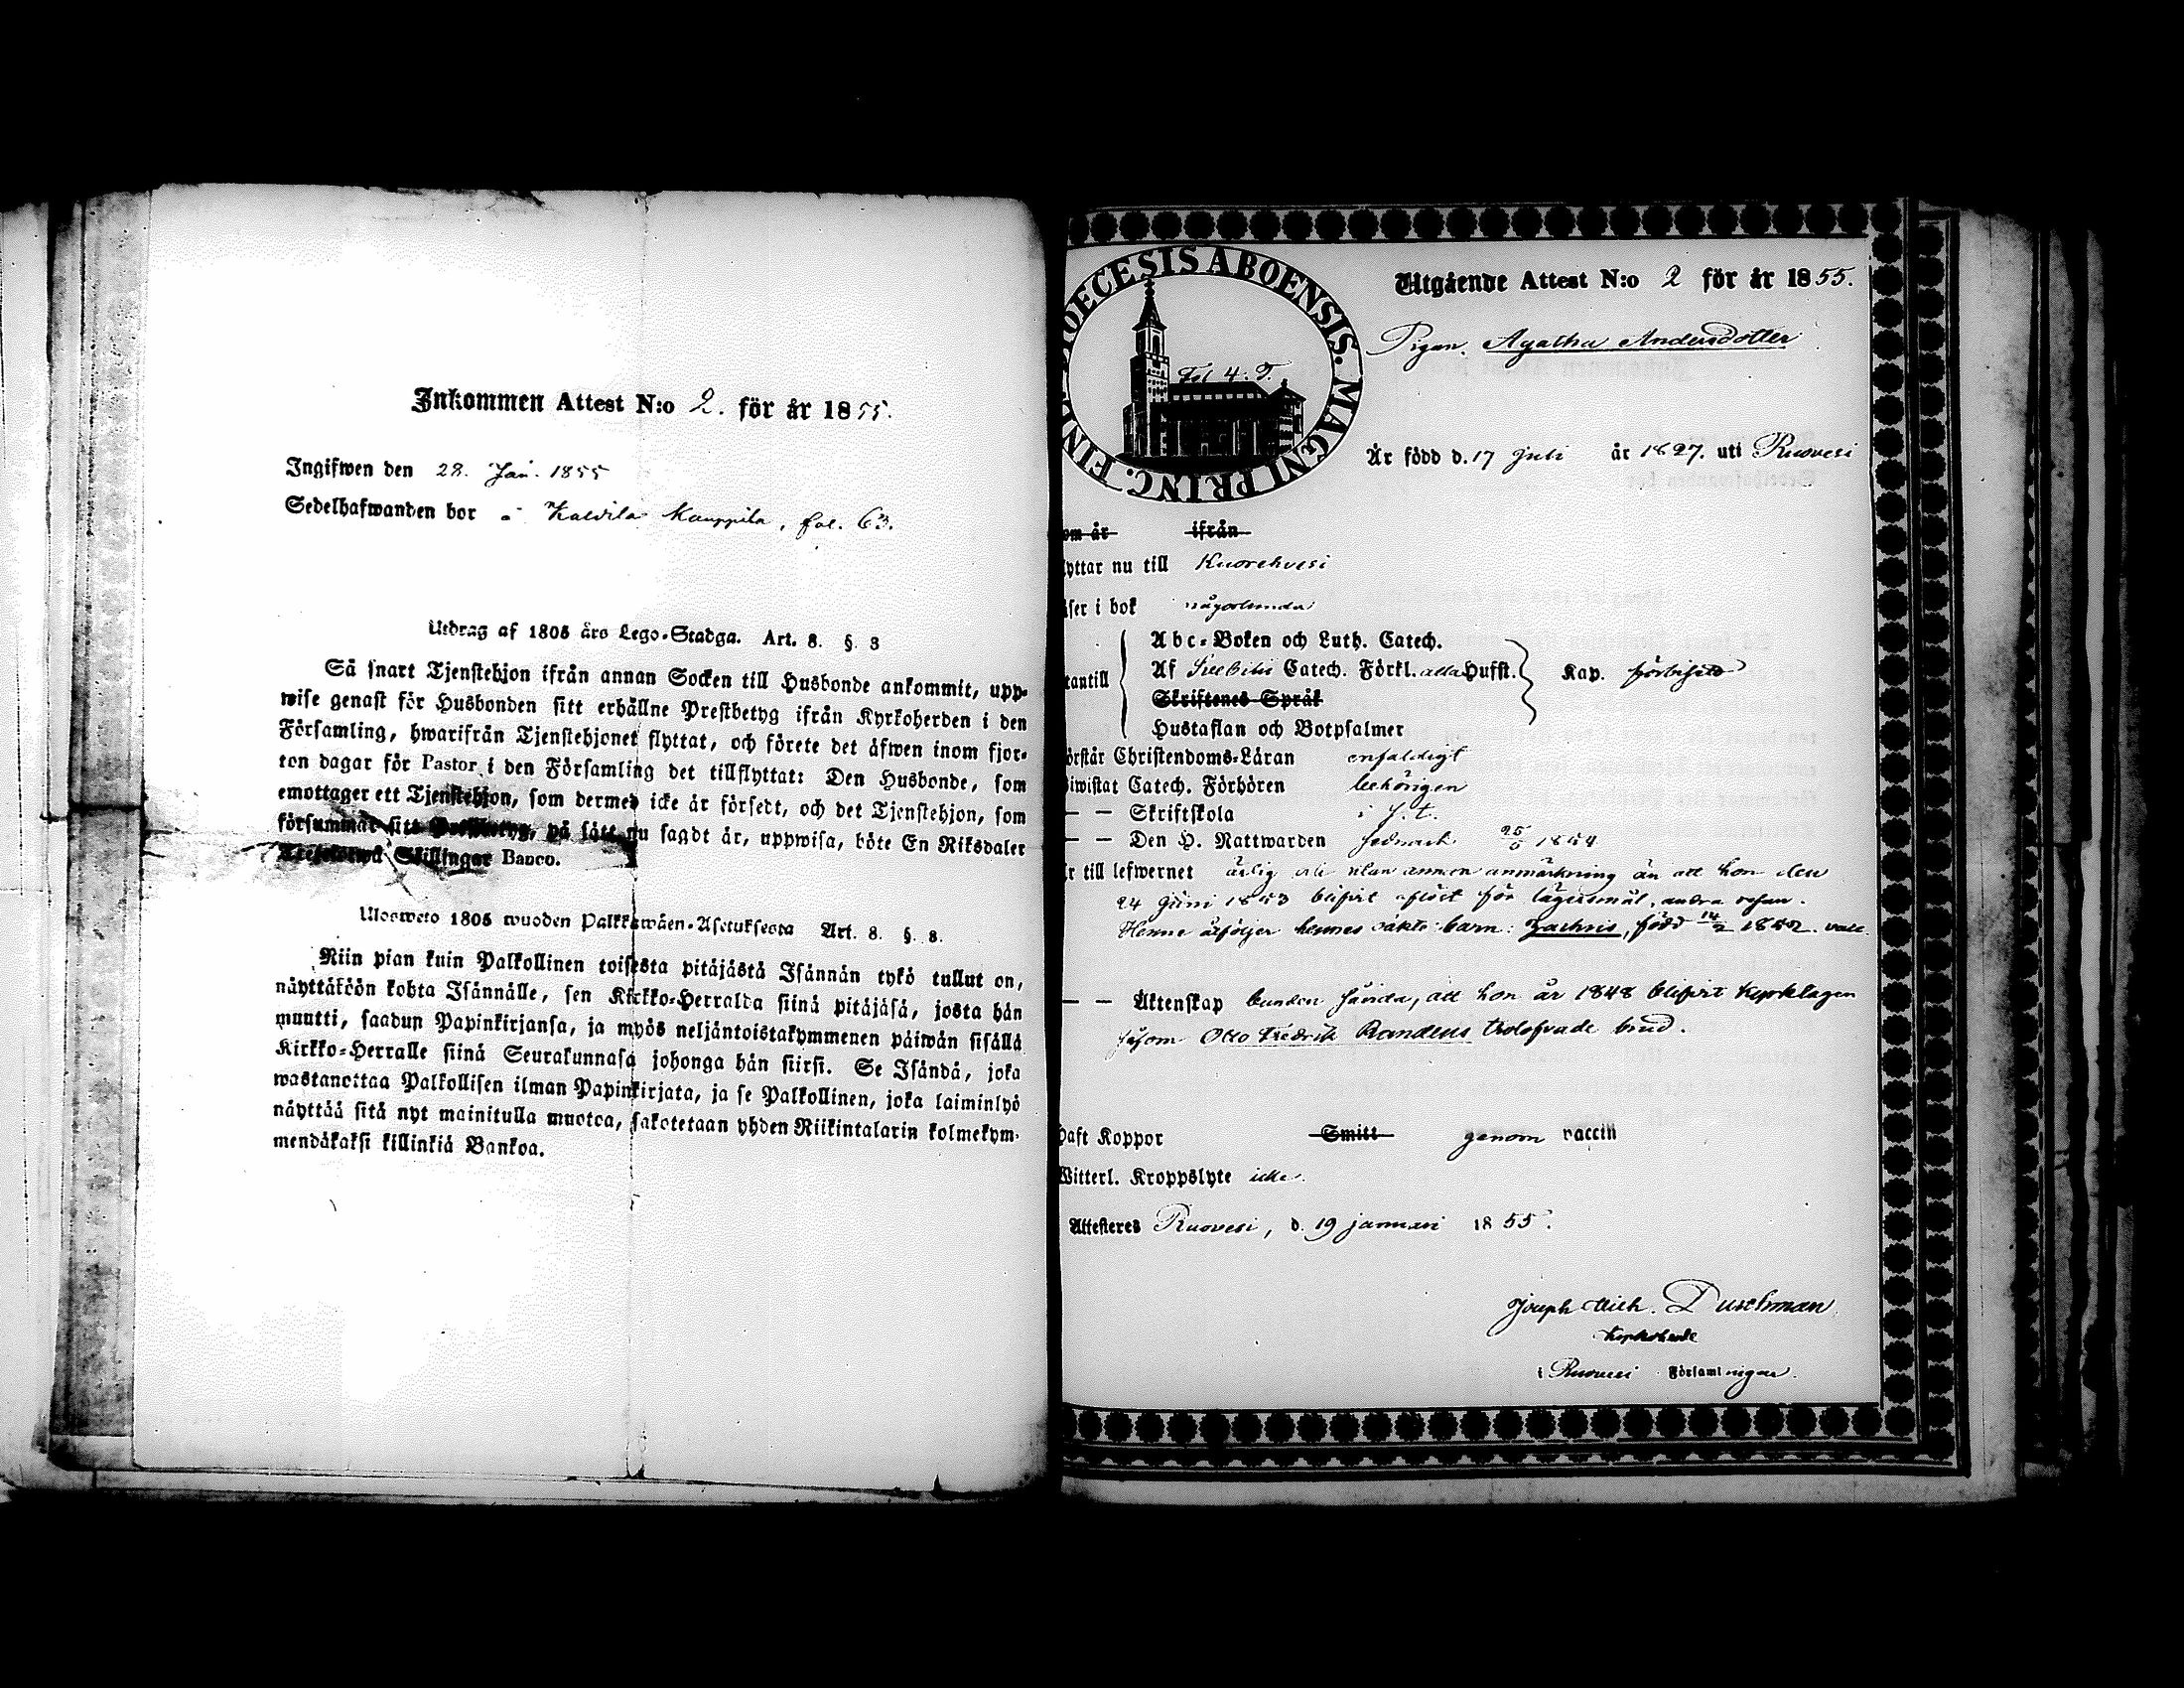 Inkommen Attest N:o 2. för år 1855.
Ingifwen den 28. Jan. 1855
Sedelhafwanden bor å Kaldila Kauppila, fol. 63.
Utdrag af 1805 års Lego-Stadga. Art. 8. §. 8
Så snart Tjenstehjon ifrån annan Socken till Husbonde ankommit, upp-
wise genast för Husbonden sitt erhållne Prestbetyg ifrån Kyrkoherden i den
Församling, hwarifrån Tjenstehjonet flyttat, och förete det äfwen inom fjor-
ton dagar för Pastor i den Församling det tillflyttat: Den Husbonde, som
emottager ett Tjenstehjon, som dermed icke är försedt, och det Tjenstehjon, som
försummar sitt på sätt nu sagdt är, uppwisa, böte En Riksdaler
Skillingar Banco.
Ulosweto 1805 wuoden Palkkawäen-Asetuksesta Art. 8. §. 8.
Niin pian kuin Palkollinen toisesta pitäjästä Isännän tykö tullut on,
näyttäköön kohta Isännälle, sen Kirkko-Herralda siinä pitäjäsä, josta hän
muutti, saadun Papinkirjansa, ja myös neljäntoistakymmenen päiwän sisällä
Kirkko-Herralle siinä Seurakunnasa johonga hän siirsi. Se Isändä, joka
wastanottaa Palkollisen ilman Papinkirjata, ja se Palkollinen, joka laiminlyö
näyttää sitä nyt mainitulla muotoa, sakotetaan yhden Riikintalarin kolmekym-
mendäkaksi killinkiä Bankoa.
DIOECESIS ABOENSIS. MAGNI PRINC. FINL
Fol 4. T.
Utgående Attest N:o 2 för år 1855.
Pigan. Agatha Andersdotter
Är född d. 17 Juli år 1827. uti Ruovesi
om år ifrån
yttar nu till Kuorehvesi
äser i bok någorlunda
Abc-Boken och Luth. Catech.
tantill Af Svebilii Catech. Förkl. alla Hufst. Kap. förbigått
Skriftenes Språk
Hustaflan och Botpsalmer
örstår Christendoms-Läran enfaldigt
iwistat Catech. Förhören behörigen
— — Skriftskola i s. t.
— — Den H. Nattwarden sednast 25/6 1854
r till lefwernet ärlig och utan annan anmärkning än att hon den
24 Juni 1853 blifvit aflöst för lägersmål, andra resan.
Henne åtföljer hennes oäkta barn: Zachris, född 14/2 1852. vacc.
— — Äktenskap bunden såvida, att hon år 1848 blifvit kyrktagen
såsom Otto Fredrik Randens trolofvade brud.
aft Koppor Smitt genom vaccin
Witterl. Kroppslyte icke.
Attesteres Ruovesi, d. 19 januari 1855.
Joseph Mich. Duschman
Kyrkoherde
i Ruovesi Församlingar.